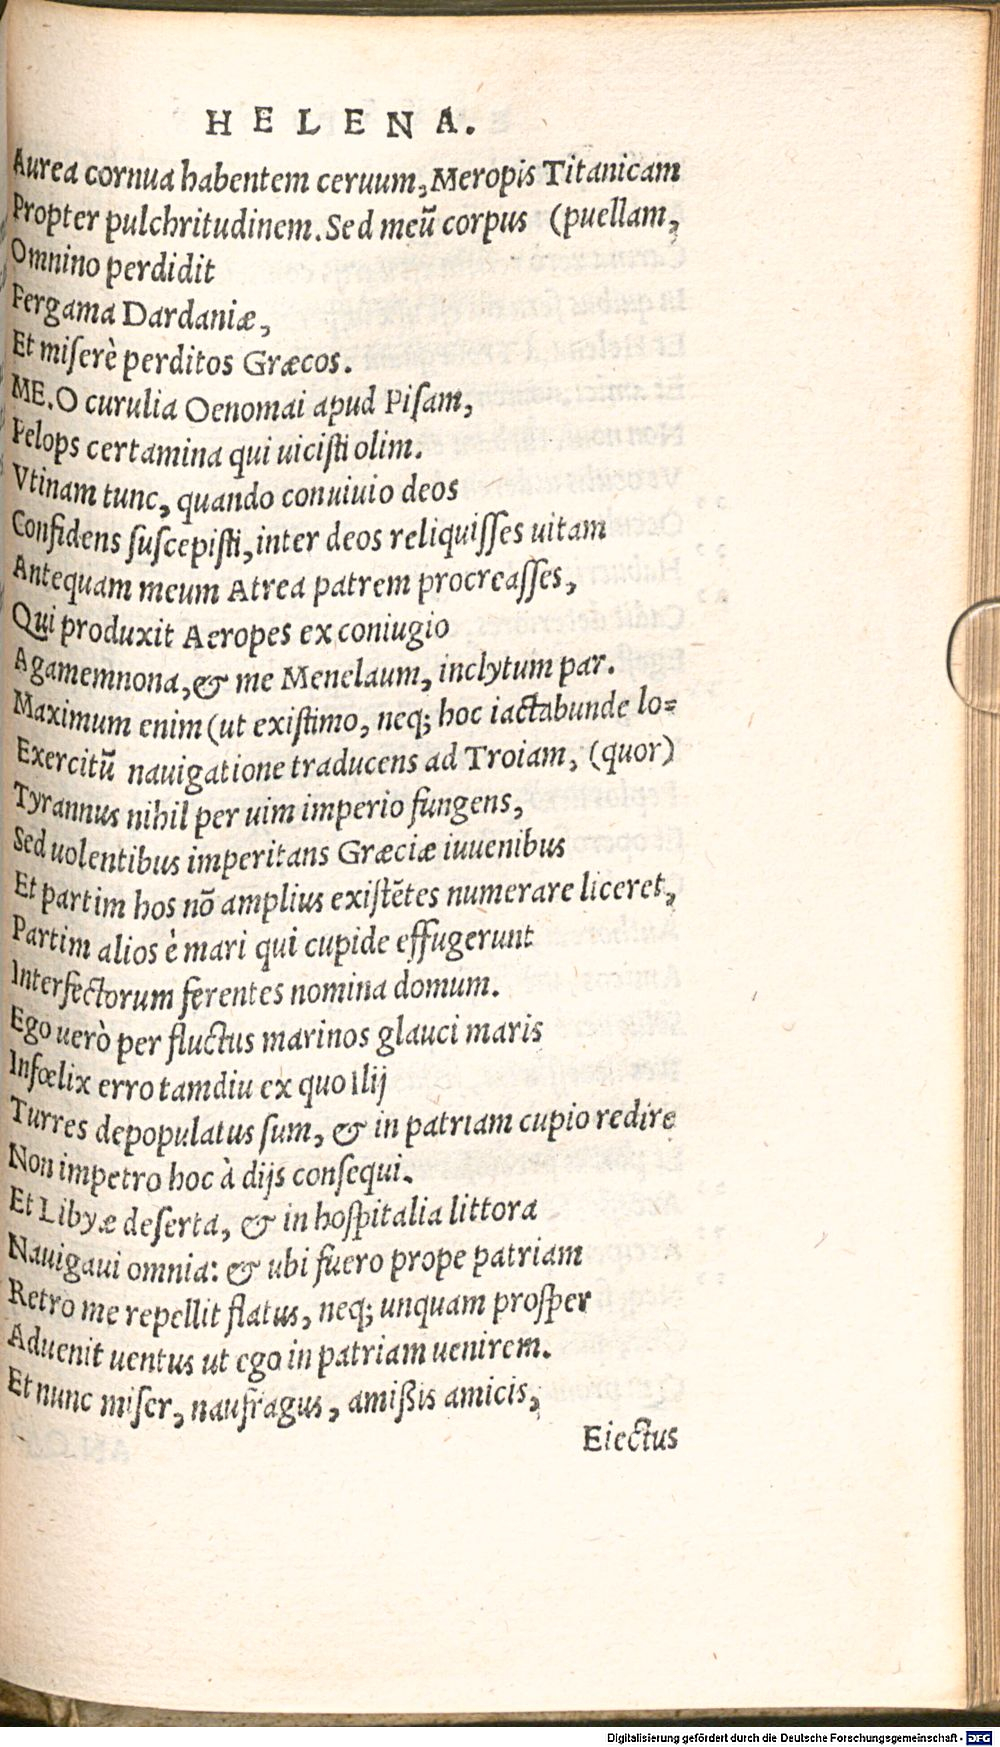 HELENA.
Aurea cornua habentem ceruum, Meropis Titanicam
Propter pulchritudinem. Sed meũ corpus (puellam,
Omnino perdidit
Pergama Dardaniæ,
Et miserè perditos Græcos.
ME. O curulia Oenomai apud Pisam,
Pelops certamina qui uicisti olim.
Vtinam tunc, quando conuiuio deos
Confidens suscepisti, inter deos reliquisses uitam
Antequam meum Atrea patrem procreasses,
Qui produxit Aeropes ex coniugio
Agamemnona, & me Menelaum, inclytum par.
Maximum enim (ut existimo, neq; hoc iactabunde lo-
Exercitũ nauigatione traducens ad Troiam, (quor)
Tyrannus nihil per uim imperio fungens,
Sed uolentibus imperitans Græciæ iuuenibus
Et partim hos nõ amplius existẽtes numerare liceret,
Partim alios è mari qui cupide effugerunt
Interfectorum ferentes nomina domum.
Ego uerò per fluctus marinos glauci maris
Infœlix erro tamdiu ex quo Ilij
Turres depopulatus sum, & in patriam cupio redire
Non impetro hoc à dijs consequi.
Et Libyæ deserta, & in hospitalia littora
Nauigaui omnia: & ubi fuero prope patriam
Retro me repellit flatus, neq; unquam prosper
Aduenit uentus ut ego in patriam uenirem.
Et nunc miser, naufragus, amißis amicis,
Eiectus
Digitalisierung gefördert durch die Deutsche Forschungsgemeinschaft - DFG